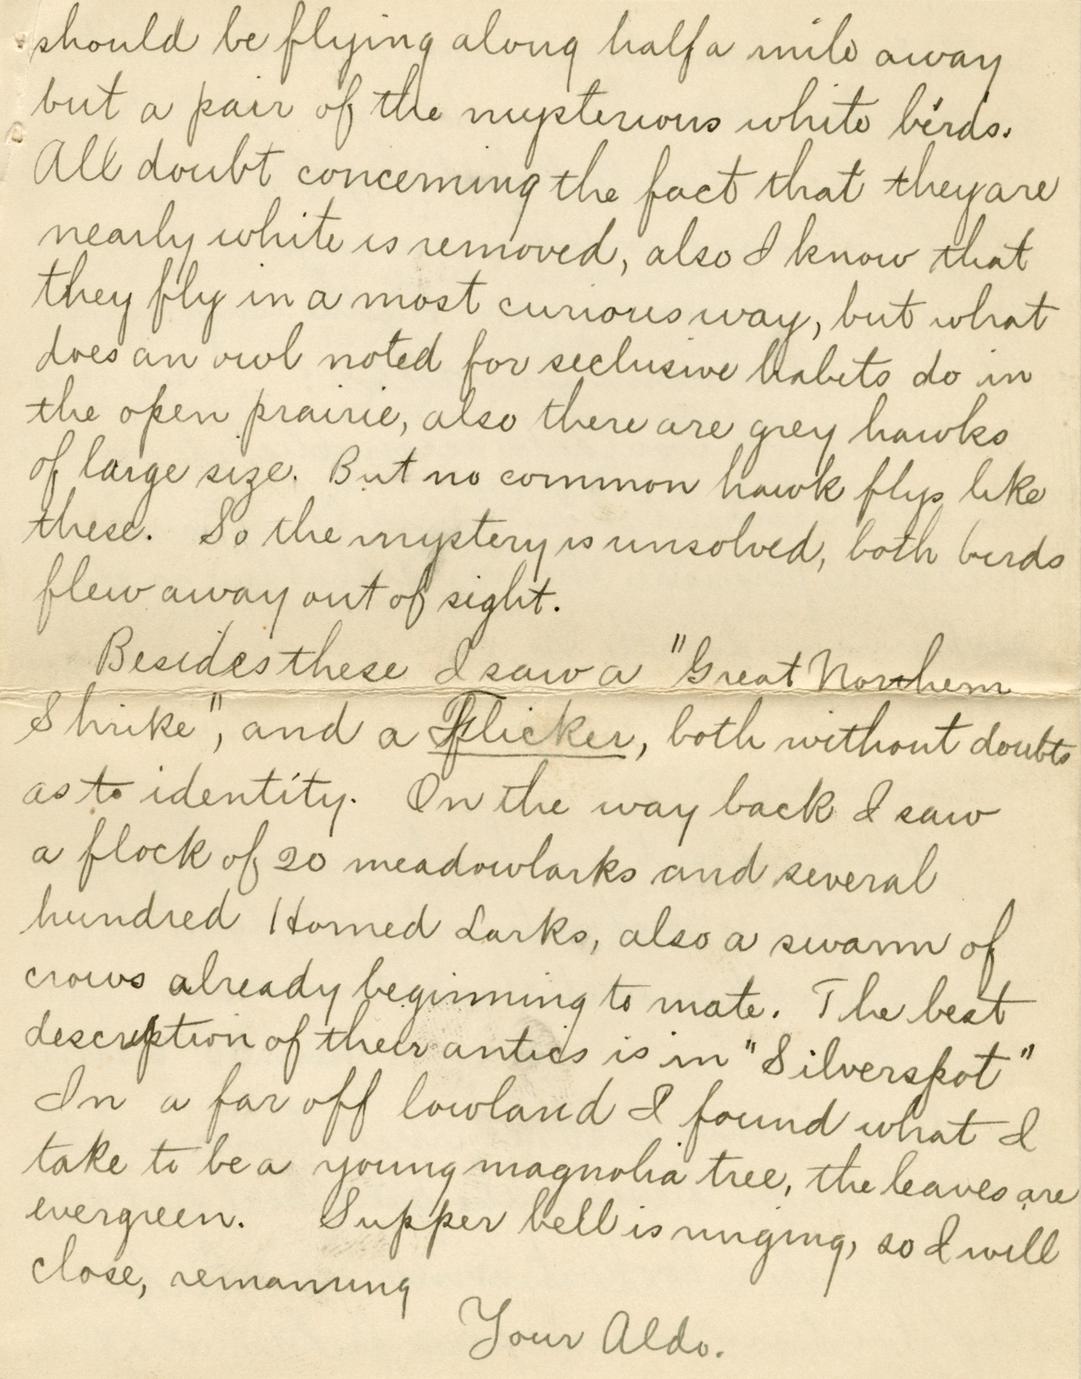 should be flying along half a mile away
but a pair of the mysterious white birds.
All doubt concerning the fact that they are
nearly white is removed, also I know that
they fly in a most curious way, but what
does an owl noted for seclusive habits do in
the open prairie, also there are grey hawks
of large size. But no common hawk flys like
these. So the mystery is unsolved, both birds
flew away out of sight.
Besides these I saw a "Great Northern
Shrike", and a Flicker, both without doubts
as to identity. On the way back I saw
a flock of 20 meadowlarks and several
hundred Horned Larks, also a swarm of
crows already beginning to mate. The best
description of their antics is in "Silverspot"
In a far off lowland I found what I
take to be a young magnolia tree, the leaves are
evergreen. Supper bell is ringing, so I will
close, remaining
Your Aldo.